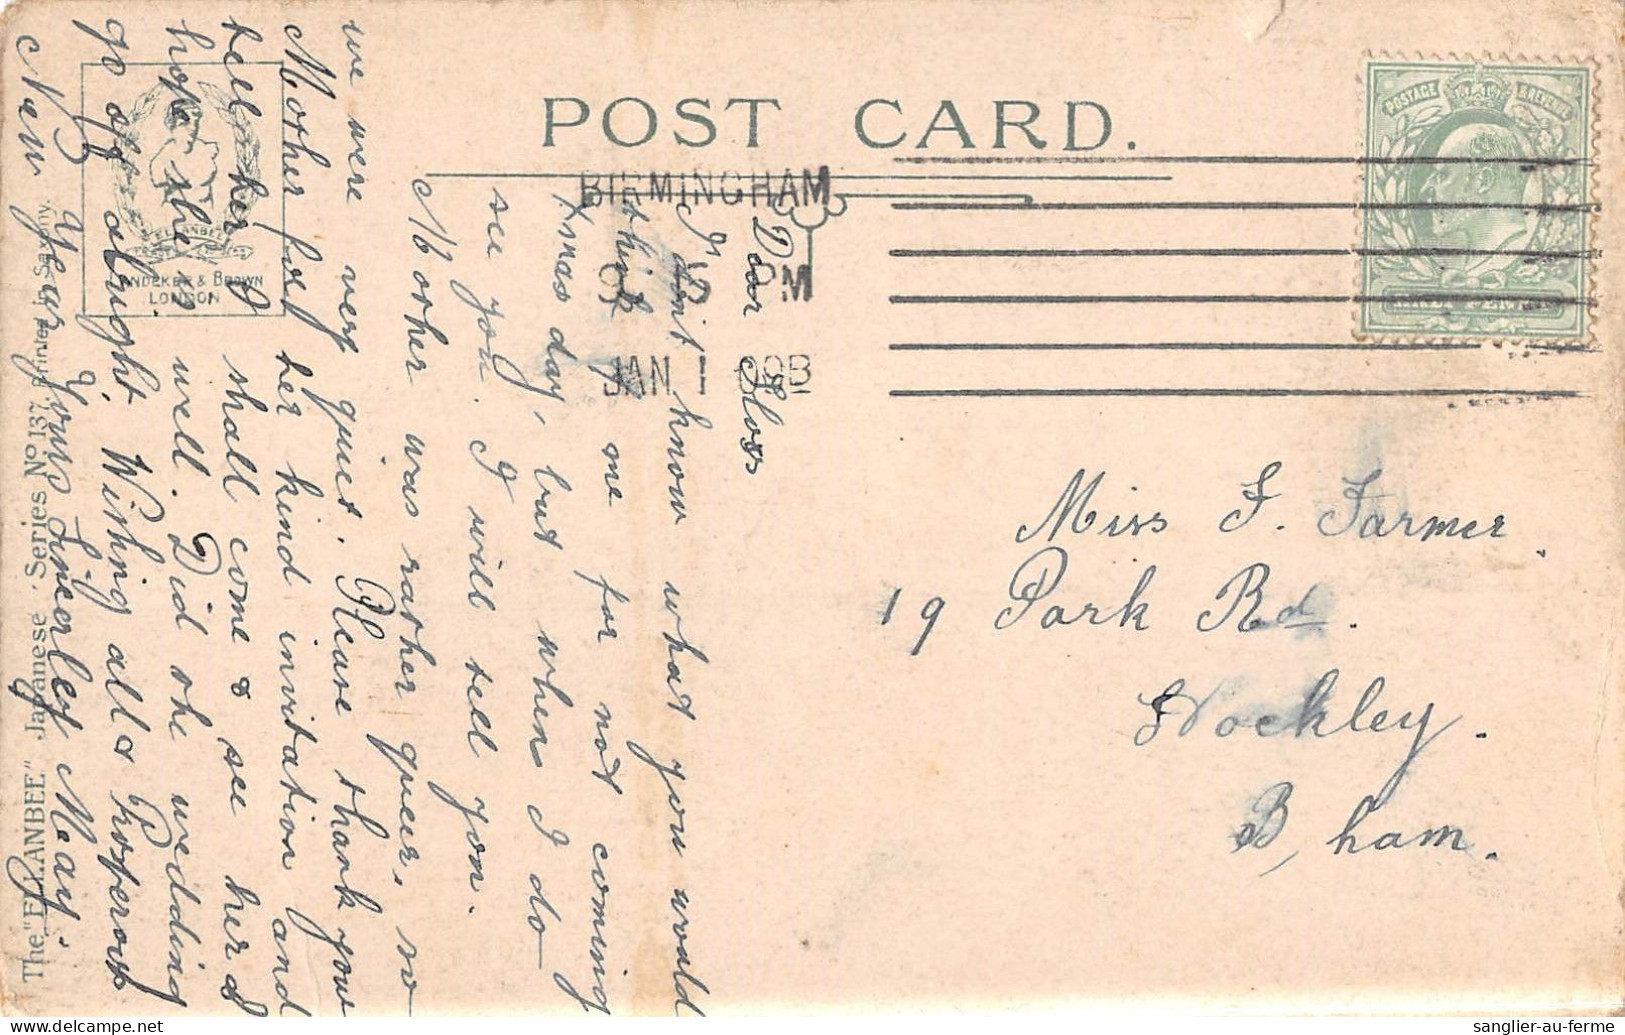 POST CARD.
BIRMINGHAM
PM
JAN 1
Miss F. Farmer
19 Park Rd.
Hockley.
B,ham.
Dear Floss
I don't know what you would
think of me for not coming
Xmas day, but when I do
see you I will tell you.
Mother was rather queer, so
we were very quiet. Please thank your
Mother for her kind invitation and
tell her I shall come & see her &
hope she is well. Did the wedding
go off alright. Wishing all a Properous
New Year, Yours Sincerley May.
ELLANBEE
LANDEKER & BROWN
LONDON
The "ELLANBEE" Japanese. Series No 137. Printed in Saxony.
POSTAGE & REVENUE
sanglier-au-ferme